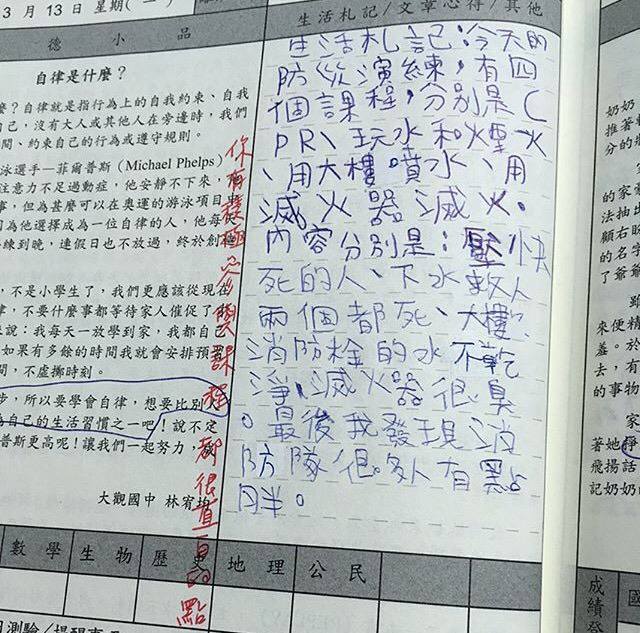 3 月 13 日 星期(一)
生活札記/文章心得/其他
德 小 品
自律是什麼？
麼？自律就是指行為上的自我約束、自我
自己，沒有大人或其他人在旁邊時，我們
間、約束自己的行為或遵守規則。
泳選手—菲爾普斯 (Michael Phelps)
注意力不足過動症，他安靜不下來，
事，但為甚麼可以在奧運的游泳項目
因為他選擇成為一位自律的人，他每
練到晚，連假日也不放過，終於創
，不是小學生了，我們更應該從現在
律，不要什麼事都等待家人催促了
來說：我每天一放學到家，我都自己
如果有多餘的時間我就會安排預
間，不虛擲時刻。
步，所以要學會自律，想要比別人
為自己的生活習慣之一吧！說不定
普斯更高呢！讓我們一起努力，
大觀國中 林宥均
生活札記：今天的
防災演練，有四
個課程，分別是C
PR、玩水和煙火
、用大樓噴水、用
滅火器滅火。
內容分別是：壓快
死的人、下水救人
兩個都死、大樓
消防栓的水不乾
淨、滅火器很臭
。最後我發現消
防隊很多人有點
胖。
你有積極參與課程都很直白一點
數學 生物 歷史 地理 公民
奶奶
推著
分的
的家
法抽出
顧右盼
的名字
了爺
來便精
羞。於
去，有
的事物
家
著她
飛揚話
記奶奶
成績